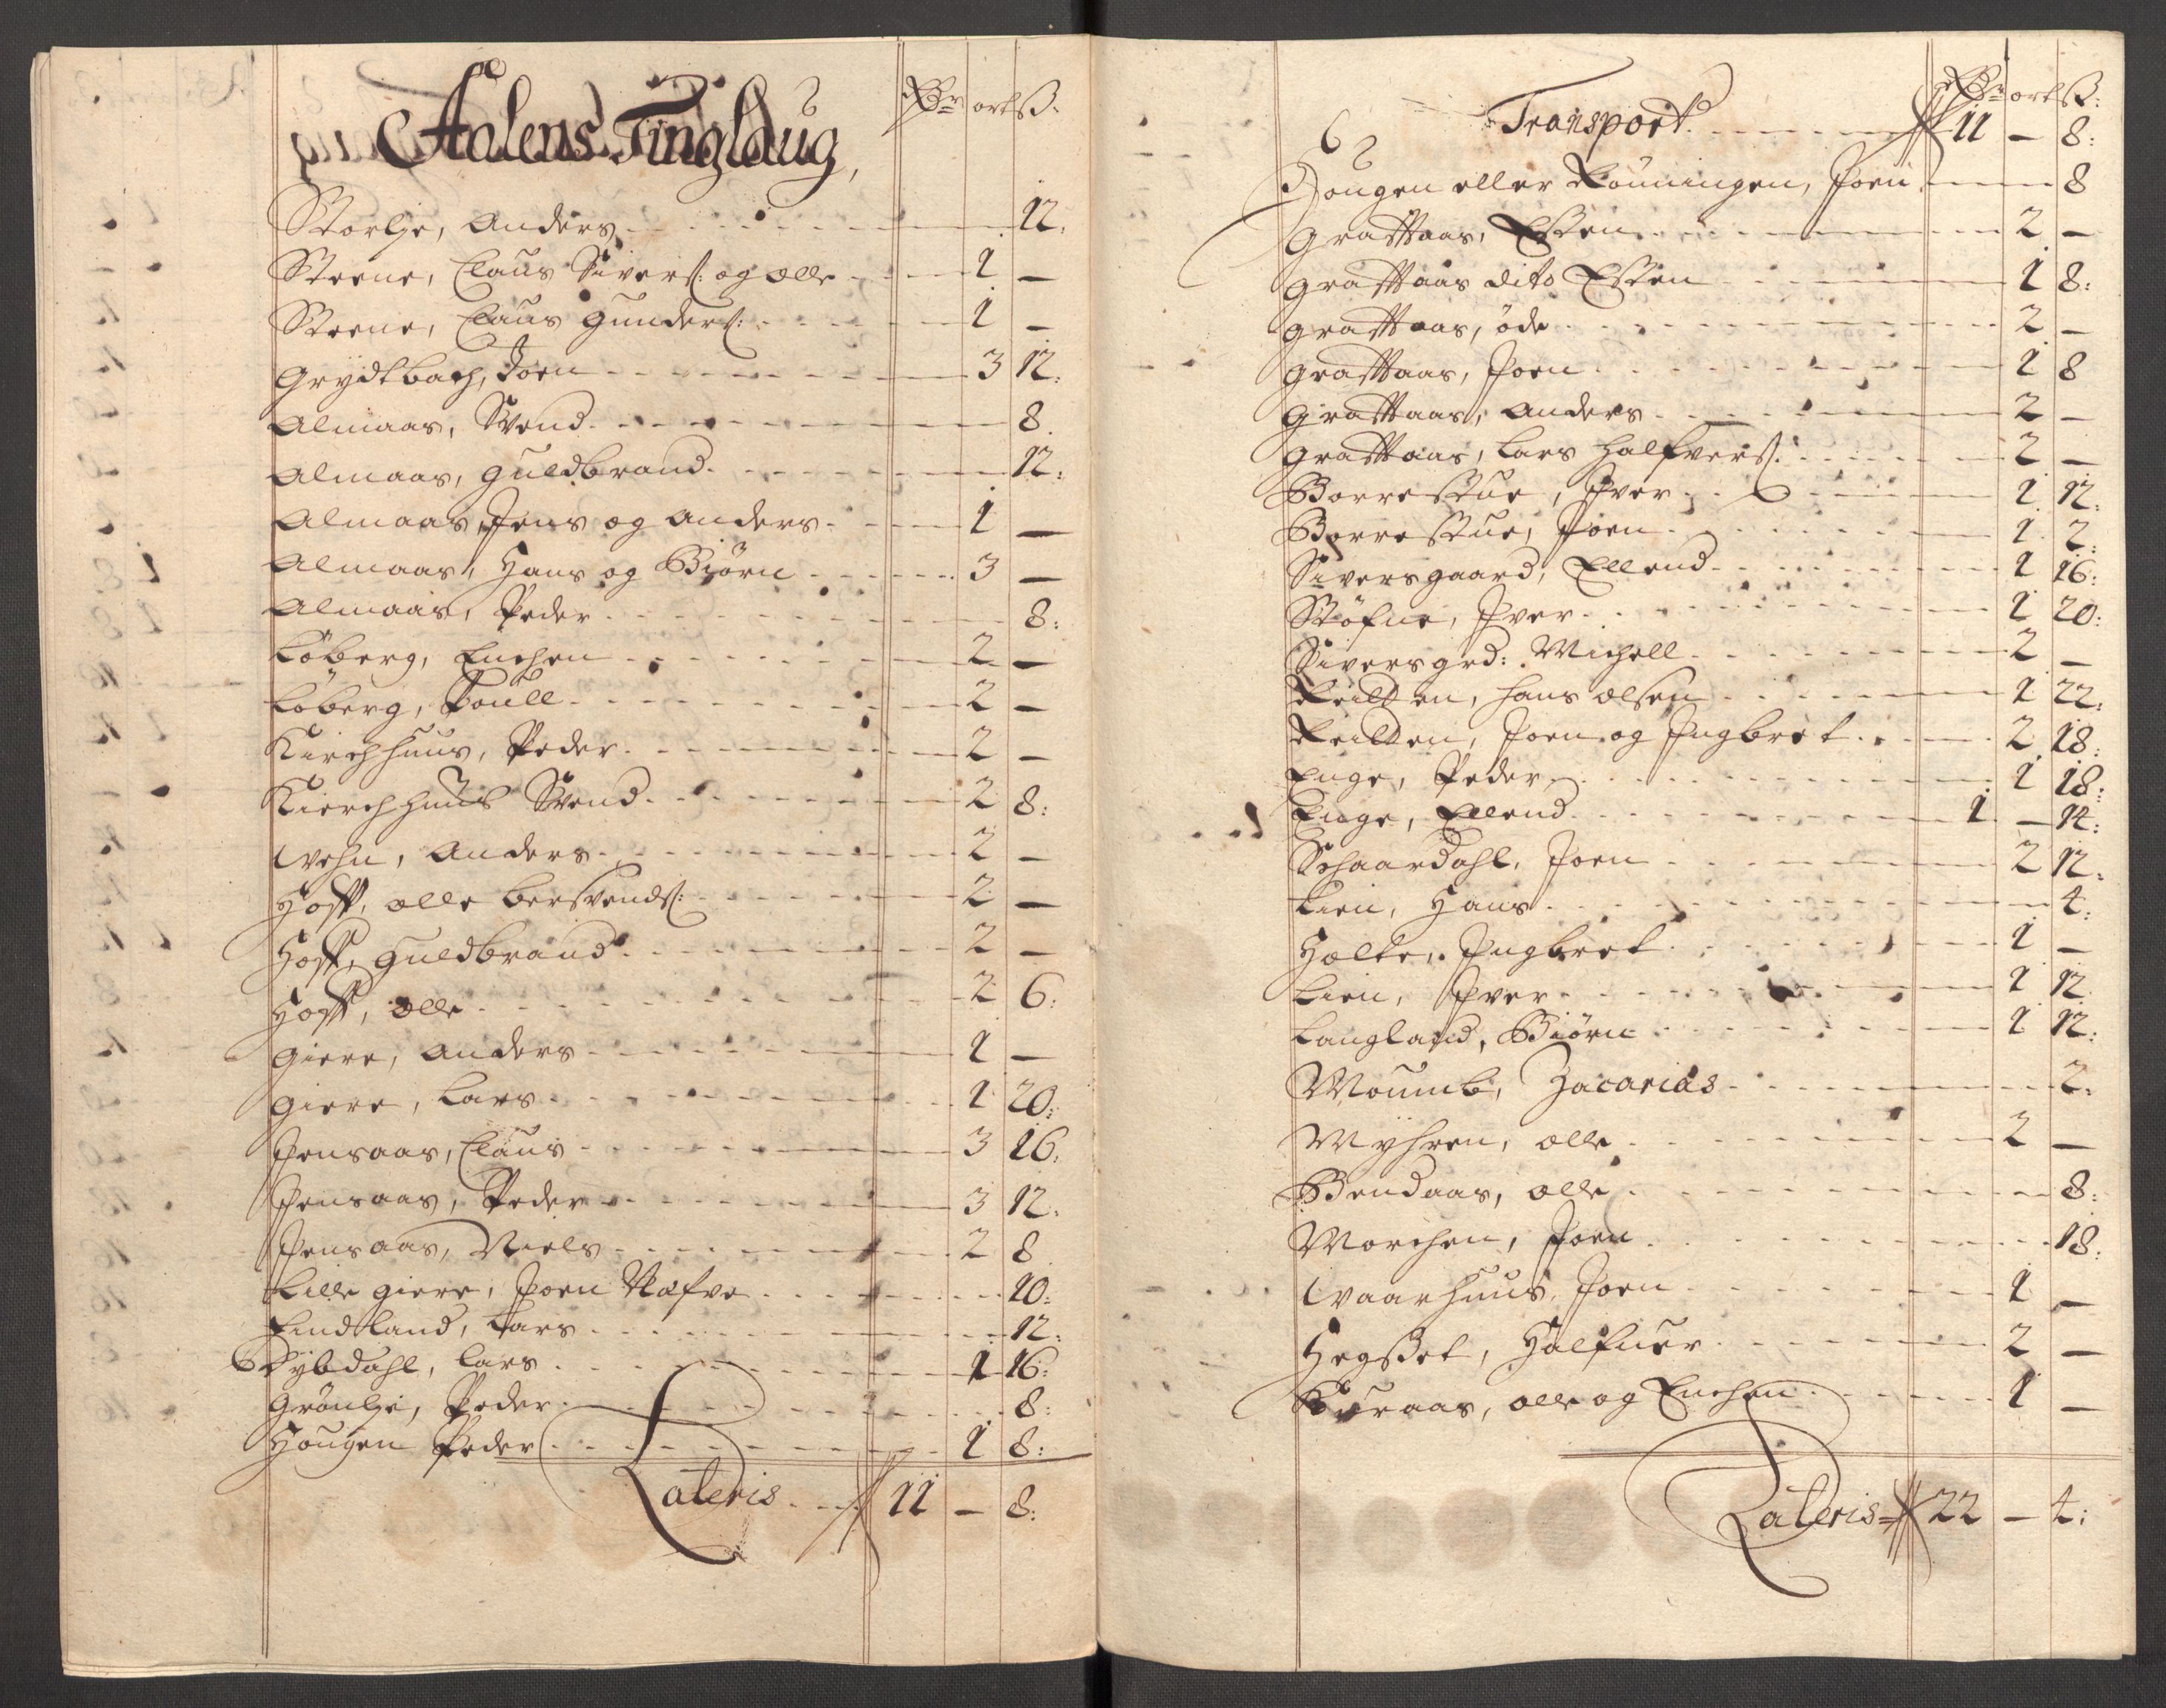 Aalens Tinglaug,
Rdr ort ß:
Storlje, Anders - - - 12:
Steene, Claus Sivers: og olle - - - 1 —
Steene, Claus Gunders: - - - 1 —
Grydtbach, Joen - - - 3 12:
Almaas, Svend - - - 8
Almaas, Guldbrand - - - 12:
Almaas, Jens og Anders - - - 1 —
Almaas, Hans og Biørn - - - 3 —
Almaas, Peder - - - 8:
Løberg, Enchen - - - 2 —
Løberg, Poull - - - 2 —
Kirchhuus, Peder - - - 2 —
Kierchhuus Svend - - - 2 8:
Wehn, Anders - - - 2 —
Hoff, olle Bersvends: - - - 2 —
Hoff, Guldbrand - - - 2 —
Hoff, olle - - - 2 6:
Giere, Anders - - - 1 —
Giere, Lars - - - 1 20:
Jensaas, Claus - - - 3 16:
Jensaas, Peder - - - 3 12:
Jensaas, Niels - - - 2 8
Lille giere, Joen - - - 10:
Lindland, Lars - - - 12:
Dybdahl, Lars - - - 1 16:
Grønlje, Peder - - - 8:
Hougen Peder - - - 1 8:
Lateris - - - 11 — 8:
Rdr ort ß:
Transport - - - 11 — 8:
Hougen eller Rønningen, Joen - - - 8
Grattaas, Esten - - - 2 —
Grattaas dito Esten - - - 1 8:
Grattaas, öde - - - 2 —
Grattaas, Joen - - - 1 8
Grattaas, Anders - - - 2 —
Grattaas, Lars Halfvers: - - - 2 —
Borrestue, Iver - - - 1 12:
Borrestue, Joen - - - 1 2:
Siversgaard, Ellend - - - 1 16:
Støfne, Iver - - - 1 20:
Siversgrd: Michell - - - 2 —
Reitten, Hans olsen - - - 1 22:
Reitten, Joen og Ingbret - - - 2 18:
Enge, Peder - - - 1 18:
Enge, Ellend - - - 1 — 12:
Schaardahl, Joen - - - 2 12:
Lien, Hans - - - 4:
Holte, Ingbret - - - 1 —
Lien, Iver - - - 1 12
Langland, Biørn - - - 1 12:
Moumb, Zacarias - - - 2:
Myhren, olle - - - 2 —
Bendaas, olle - - - 8:
Morchen, Joen - - - 18:
Waarhuus, Joen - - - 1 —
Hegset, Halfuer - - - 2 —
Kuraas, olle og Enchen - - - 1 —
Lateris 22 — 4: